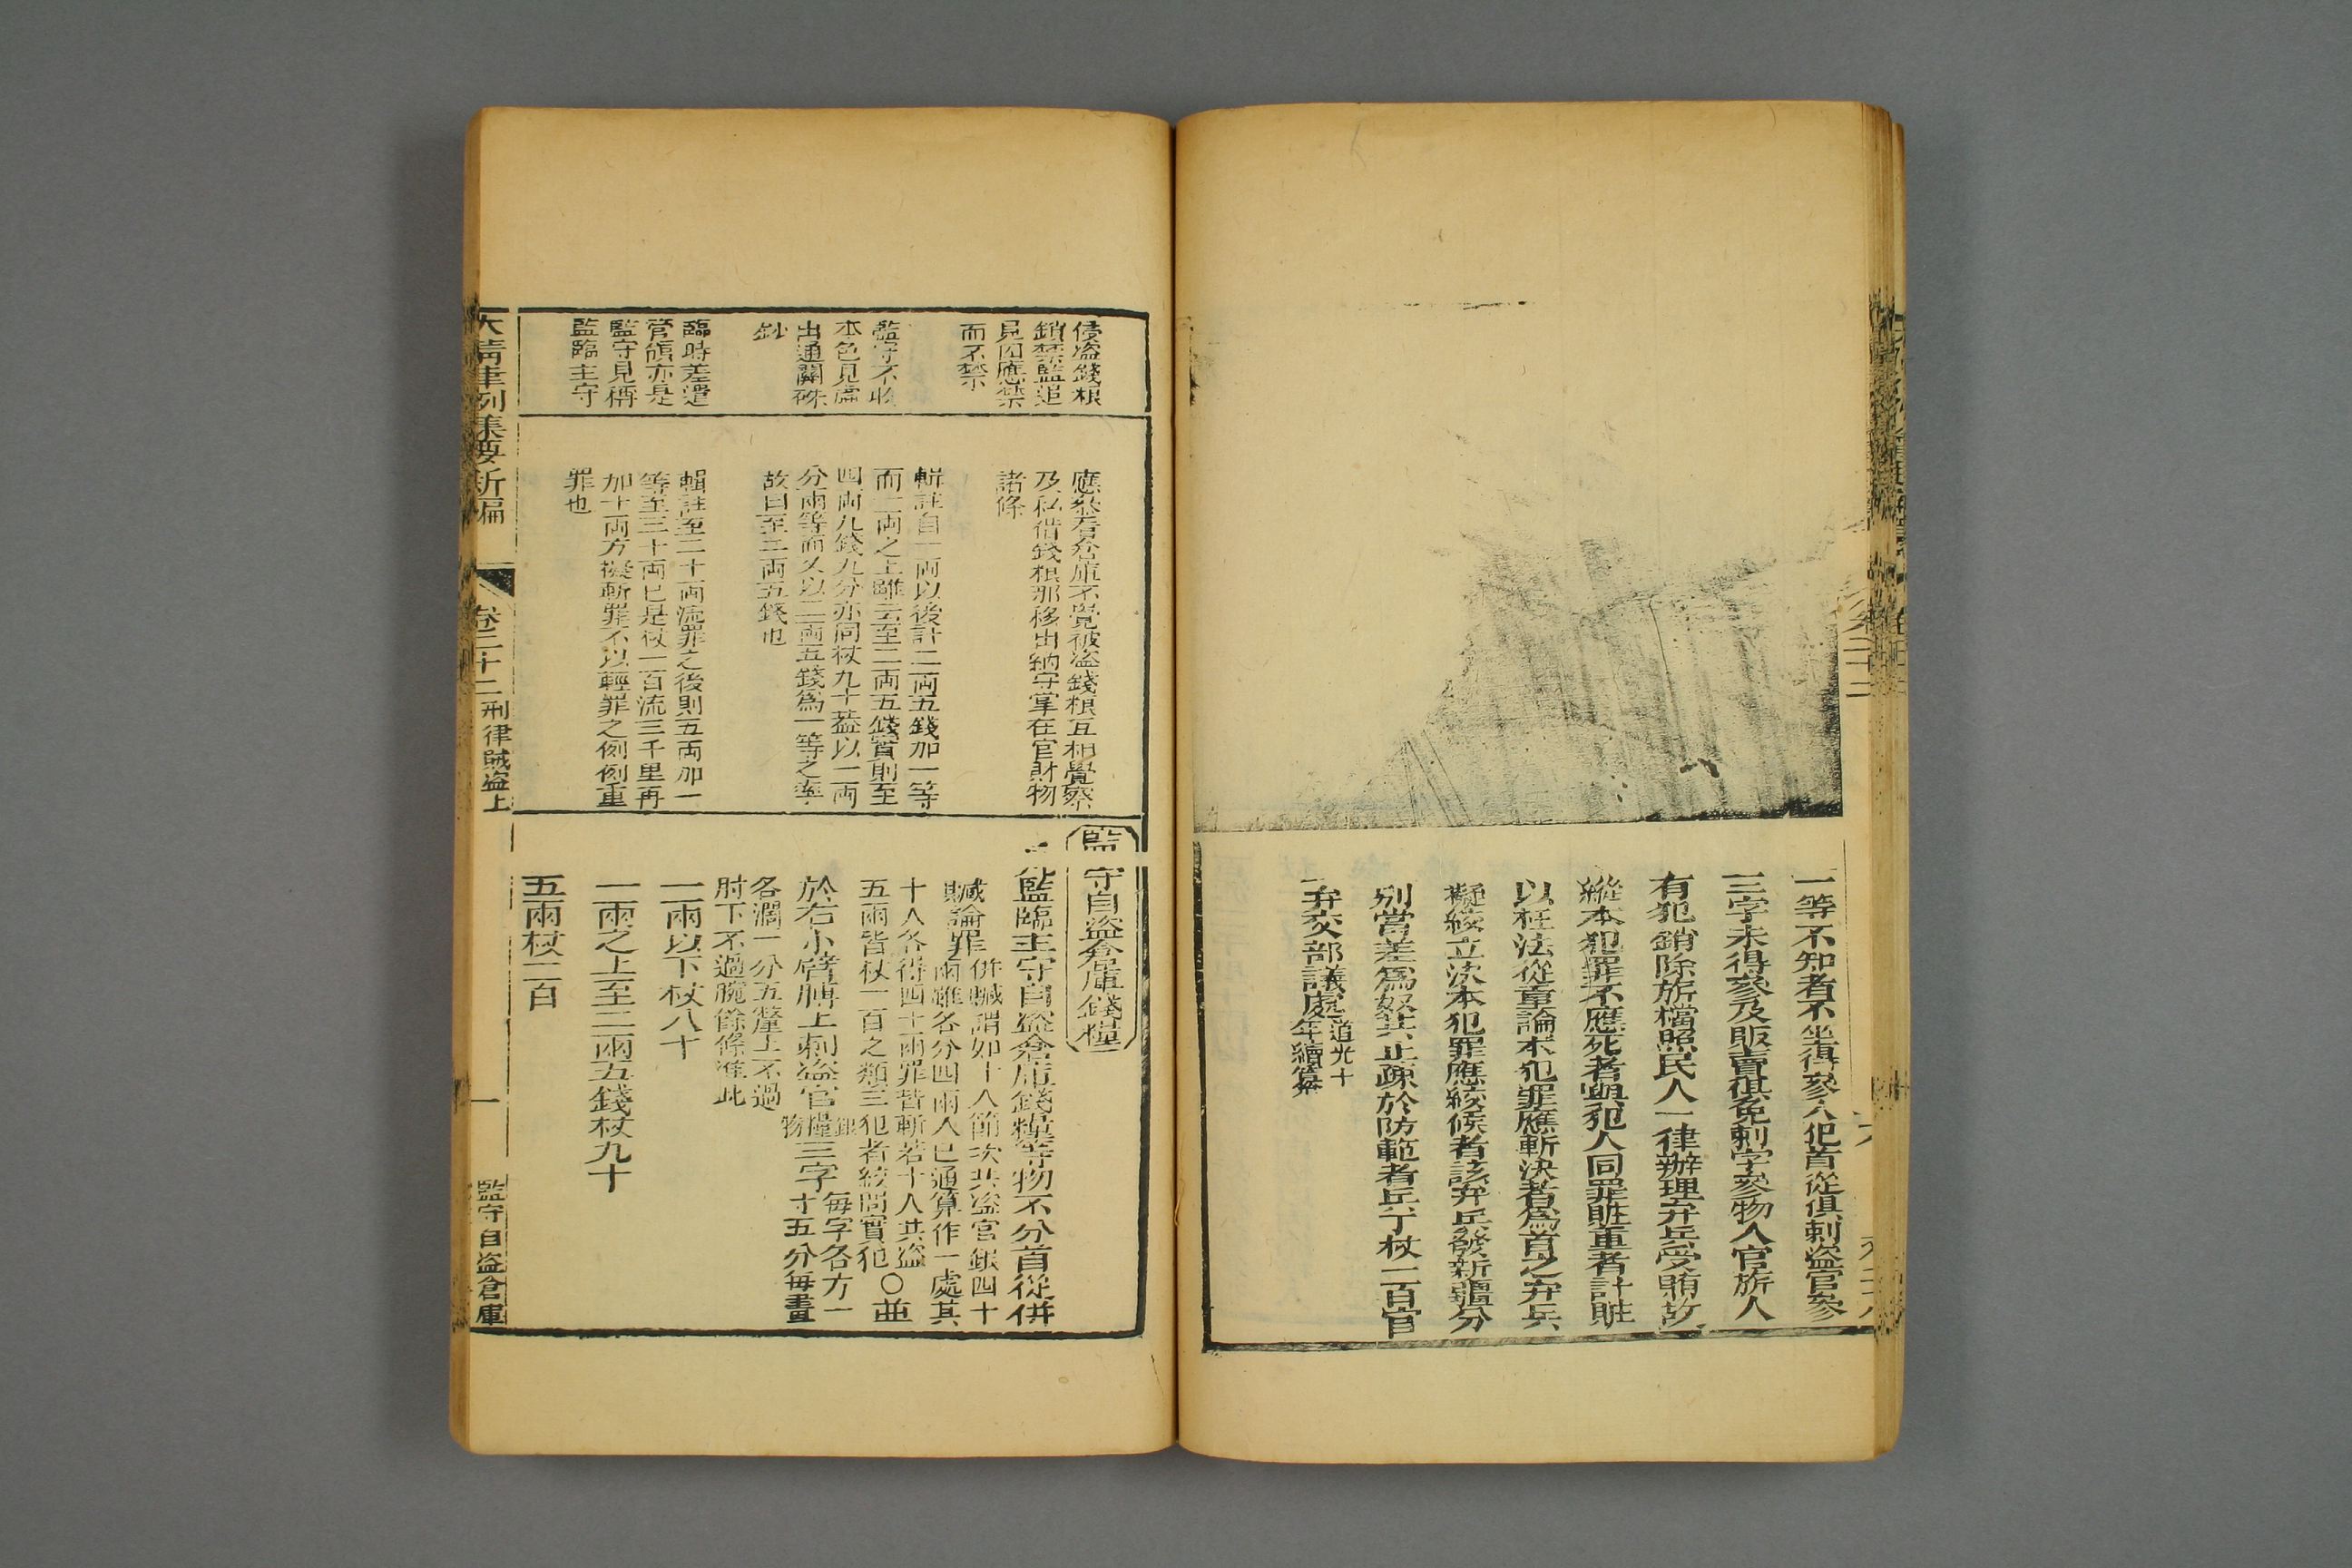 一等不知者不坐得參人犯首從俱刺盜官參
三字未得參及販賣俱免刺字參物入官旂人
有犯銷除旂檔照民人一律辦理弁兵受賄故
縱本犯罪不應死者與犯人同罪贓重者計贓
以枉法從重論本犯罪應斬決者爲首之弁兵
擬絞立決本犯罪應絞候者該弁兵發新疆分
別當差爲奴其止疎於防範者兵丁杖一百官
弁交部議處道光十
年續纂
侵盜錢粮
鎖禁監追
見囚應禁
而不禁
監守不收
本色見虛
出通關硃
鈔
臨時差遣
管領亦是
監守見稱
監臨主守
應叅看倉庫不覺被盜錢粮互相覺察
及私借錢粮那移出納守掌在官財物
諸條
輯註自一兩以後計二兩五錢加一等
而一兩之上雖云至二兩五錢實則至
四兩九錢九分亦同杖九十葢以一兩
分兩等而又以二兩五錢爲一等之率
故曰至二兩五錢也
輯註至二十兩流罪之後則五兩加一
等至三十兩已是杖一百流三千里再
加十兩方擬斬罪不以輕罪之例例重
罪也
監守自盜倉庫錢糧
凡監臨主守自盜倉庫錢糧等物不分首從併
贓論罪併贓謂如十人節次共盜官銀四十
兩雖各分四兩入己通算作一處其
十人各得四十兩罪皆斬若十人共盜
五兩皆杖一百之類三犯者絞問實犯〇並
於右小臂膊上刺盜官銀糧物三字每字各方一
寸五分每畫
各濶一分五釐上不過
肘下不過腕餘條准此
一兩以下杖八十
一兩之上至二兩五錢杖九十
五兩杖一百
大清律例集要新編
卷二十二刑律賊盜上
一
監守自盜倉庫